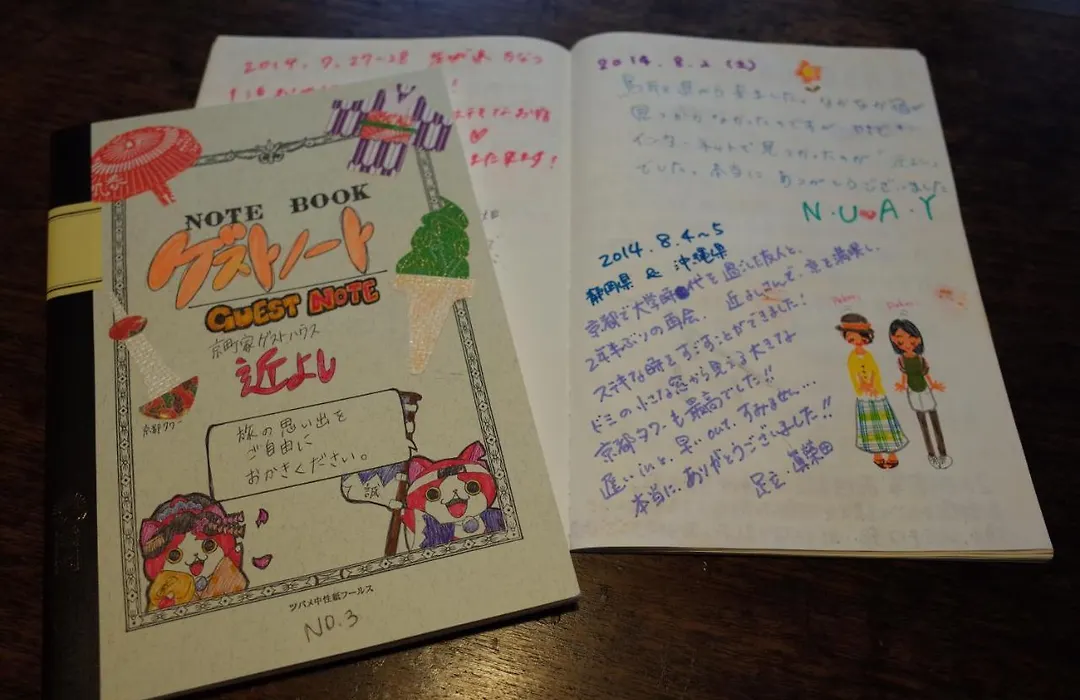 NOTE BOOK
ゲストノート
GUEST NOTE
京町家ゲストハウス
近よし
京都タワー
旅の思い出を
ご自由に
おかきください。
誠
ツバメ中性紙フールス
NO.3
2014. 7. 27-28
また来ます!
2014. 8. 2 (土)
鳥取県から来ました。なかなか宿が
見つからなかったのですが
インターネットで見つかったのが
でした。本当にありがとうございました
N・U♥A・Y
2014. 8. 4~5
静岡県 & 沖縄県
京都で大学時代を過した友人と、
2年半ぶりの再会。近よしさんで、京を満喫し、
ステキな時をすごすことができました!
ドミの小さな窓から見える大きな
京都タワーも最高でした!!
遅いinと、早いoutで、すみません…
本当に、ありがとうございました!!
足立・眞榮田